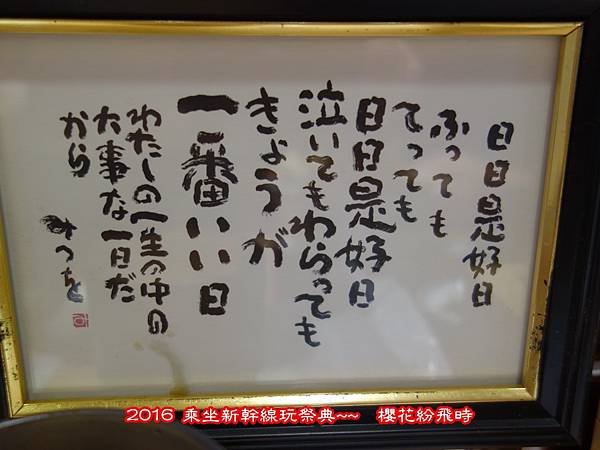 日日是好日
ふっても
てっても
日日是好日
泣いてもわらっても
きょうが
一番いい日
わたしの一生の中の
大事な一日だ
から
みつを
2016 乘坐新幹線玩祭典~~ 櫻花紛飛時